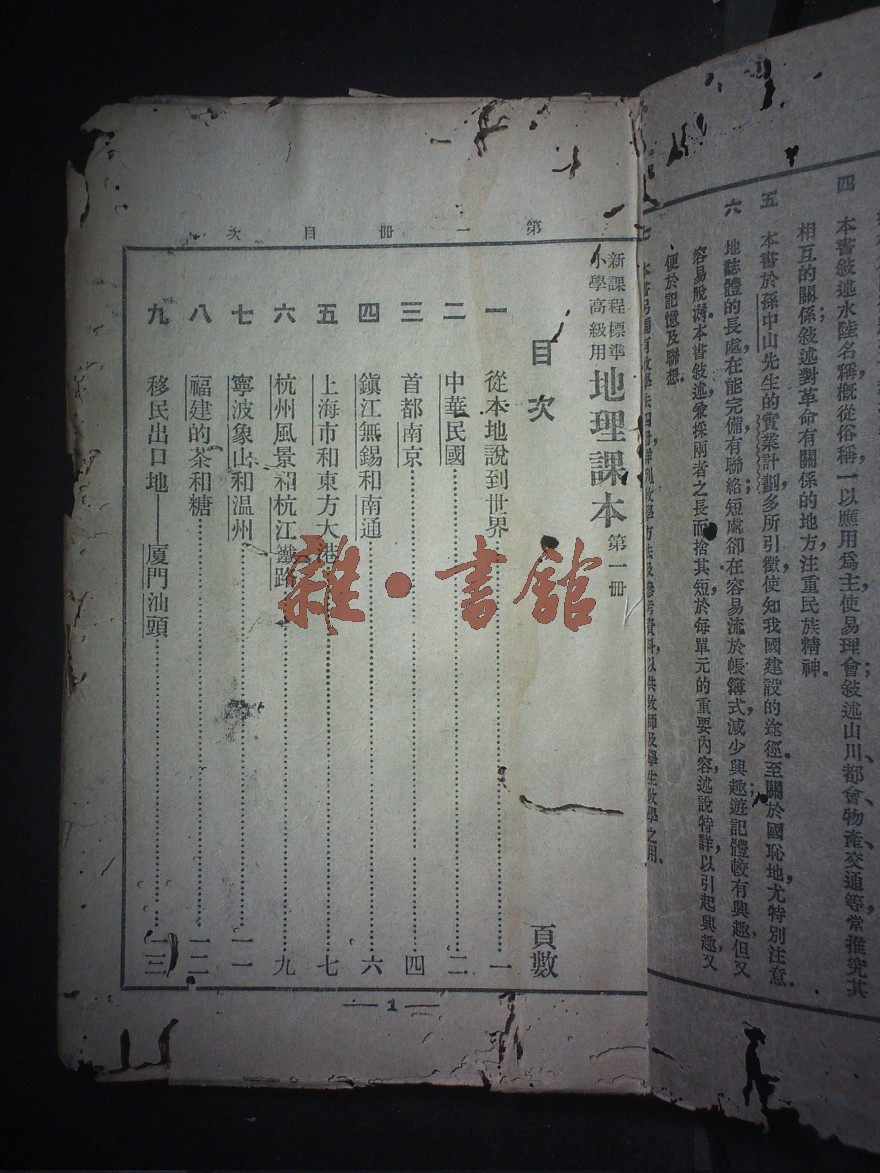 四 本書敍述水陸名稱,概從俗稱,一以應用爲主,使易理會;敍述山川、都會、物產、交通等,常推究其
相互的關係;敍述對革命有關係的地方,注重民族精神.
五 本書於孫中山先生的實業計劃,多所引徵,使知我國建設的途徑.至關於國恥地,尤特別注意.
六 地誌體的長處,在能完備有聯絡,短處卻在容易流於帳簿式,減少興趣;遊記體較有興趣,但又
容易脫漏.本書敍述,兼採兩者之長,而捨其短,於每單元的重要內容,述說特詳,以引起興趣,又
便於記憶及聯想.
七 本書另備有教學法四冊,特別教學方法及參考資料,以供教師及學生教學之用.
第一冊 目次
新課程標準小學高級用 地理課本 第一冊
目次 頁數
一 從本地說到世界 一
二 中華民國 二
三 首都南京 四
四 鎮江無錫和南通 六
五 上海市和東方大港 七
六 杭州風景和杭江鐵路 九
七 寧波象山和温州 一一
八 福建的茶和糖 一二
九 移民出口地——厦門汕頭 一三
1
雜·書館